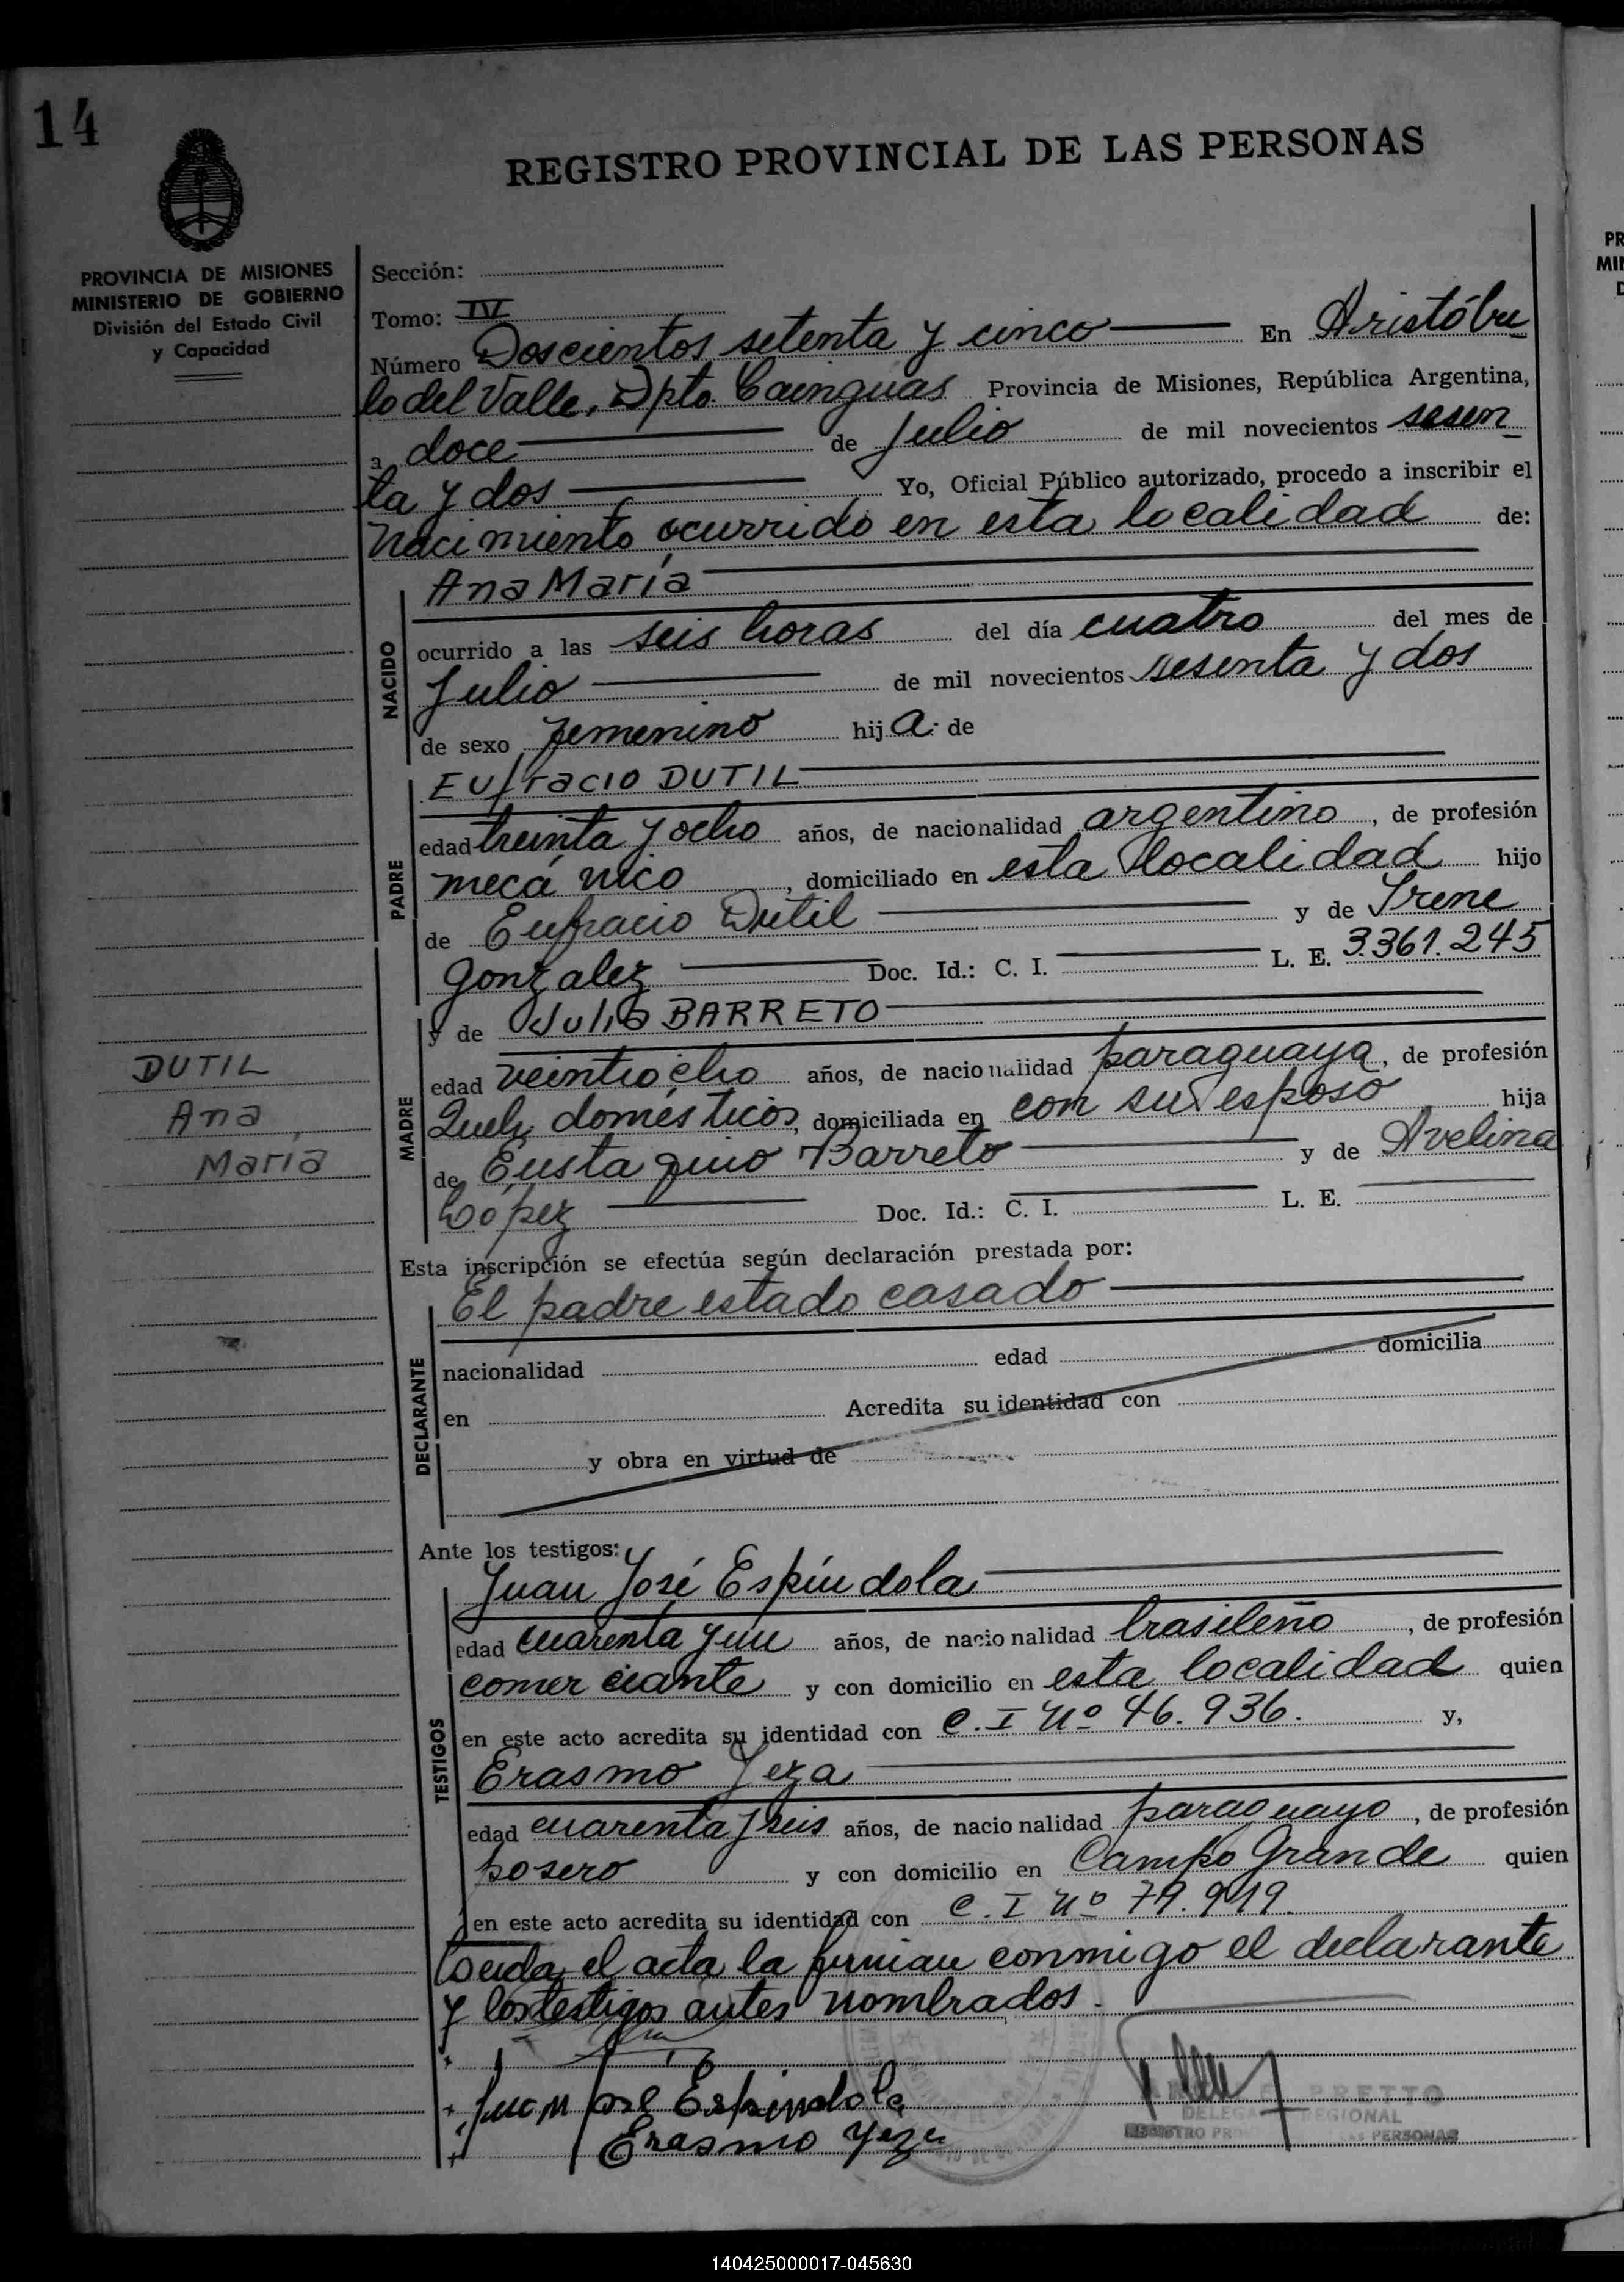 14
REGISTRO PROVINCIAL DE LAS PERSONAS
PROVINCIA DE MISIONES
MINISTERIO DE GOBIERNO
División del Estado Civil
y Capacidad
Sección:
Tomo: IV
Número Doscientos setenta y cinco En Aristóbu
lo del Valle, Dpto. Cainguas Provincia de Misiones, República Argentina,
a doce de Julio de mil novecientos sesen
ta y dos Yo, Oficial Público autorizado, procedo a inscribir el
Nacimiento ocurrido en esta localidad de:
NACIDO
Ana María
ocurrido a las seis horas del día cuatro del mes de
Julio de mil novecientos sesenta y dos
de sexo femenino hija de
PADRE
Eufracio DUTIL
edad treinta y ocho años, de nacionalidad argentino, de profesión
mecánico, domiciliado en esta localidad hijo
de Eufracio Dutil y de Irene
Gonzalez Doc. Id.: C. I. L. E. 3.361.245
MADRE
y de Julia BARRETO
edad veintiocho años, de nacionalidad paraguaya, de profesión
Queh. domésticos, domiciliada en con su esposo hija
de Eustaquio Barreto y de Avelina
López Doc. Id.: C. I. L. E.
DUTIL
Ana
María
Esta inscripción se efectúa según declaración prestada por:
DECLARANTE
El padre estado casado
nacionalidad edad domicilia
en Acredita su identidad con
y obra en virtud de
Ante los testigos:
TESTIGOS
Juan José Espíndola
edad cuarenta y un años, de nacionalidad brasileño, de profesión
comerciante y con domicilio en esta localidad quien
en este acto acredita su identidad con C. I Nº 46.936. y,
Erasmo Yeza
edad cuarenta y seis años, de nacionalidad paraguayo, de profesión
posero y con domicilio en Campo Grande quien
en este acto acredita su identidad con C. I Nº 79.919.
Leida el acta la firman conmigo el declarante
y los testigos antes nombrados.
Juan José Espindola
Erasmo Yeza
PRETTO
REGIONAL
PERSONAS
PR
MI
140425000017-045630